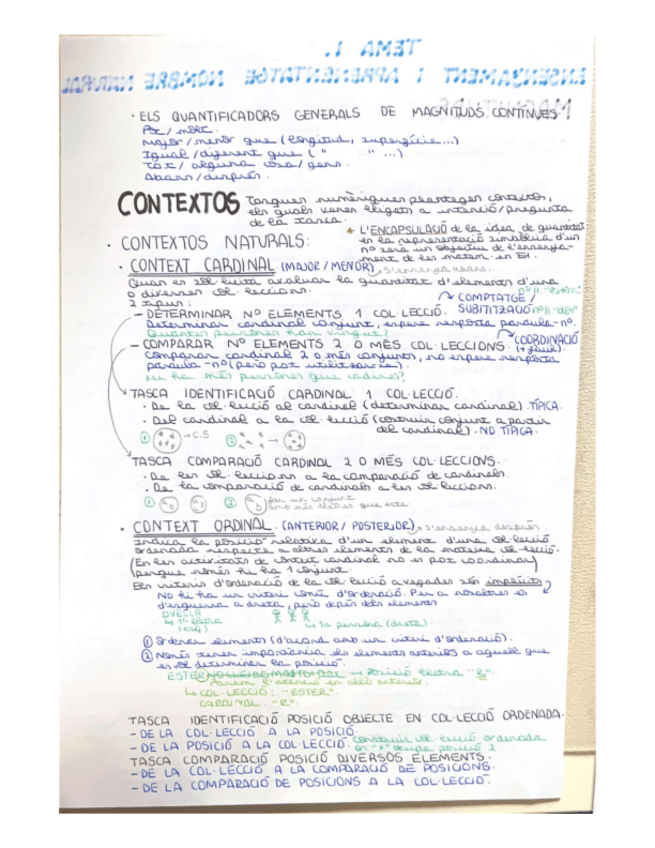 TEMA 1.
ENSENYAMENT I APRENENTATGE NOMBRE NATURAL
· ELS QUANTIFICADORS GENERALS DE MAGNITUDS CONTÍNUES
Poc / molt.
Major / menor que (longitud, superfície...)
Igual / diferent que ( " " ...)
Tot / alguna cosa / gens.
Abans / després.
CONTEXTOS Tasques numèriques plantegen contextos,
els quals venen lligats a intenció/pregunta
de la tasca.
* L'ENCAPSULACIÓ de la idea de quantitat
en la representació simbòlica d'un
nº serà un objectiu de l'ensenya-
ment de les matem. en EI.
· CONTEXTOS NATURALS:
· CONTEXT CARDINAL (MAJOR / MENOR) → S'ensenya abans.
Quan es sol·licita avaluar la quantitat d'elements d'una
o diverses col·leccions.
2 tipus:
COMPTATGE /
SUBITITZACIÓ
— DETERMINAR Nº ELEMENTS 1 COL·LECCIÓ.
Determinar cardinal conjunt, espere resposta paraula-nº.
Quantes persones han vingut?
— COMPARAR Nº ELEMENTS 2 O MÉS COL·LECCIONS. COORDINACIÓ
Comparar cardinal 2 o més conjunts, no espere resposta
paraula-nº (però pot utilitzar-se).
Hi ha més persones que cadires?
TASCA IDENTIFICACIÓ CARDINAL 1 COL·LECCIÓ.
· De la col·lecció al cardinal (determinar cardinal). TÍPICA.
· Del cardinal a la col·lecció (construir conjunt a partir
del cardinal). NO TÍPICA.
① → c.5 ②
TASCA COMPARACIÓ CARDINAL 2 O MÉS COL·LECCIONS.
· De les col·leccions a la comparació de cardinals.
· De la comparació de cardinals a les col·leccions.
① ② fer un conjunt
amb més lletres que este
· CONTEXT ORDINAL (ANTERIOR / POSTERIOR) → S'ensenya després.
Indica la posició relativa d'un element d'una col·lecció
ordenada respecte a altres elements de la mateixa col·lecció.
(En les activitats de context cardinal no es pot coordinar
perquè només hi ha 1 conjunt.
Els criteris d'ordenació de la col·lecció a vegades són implícits
No hi ha un criteri comú d'ordenació. Per a nosaltres és
d'esquerra a dreta, però depén dels elements
OVELLA
↳ 1ª lletra
(esq)
↳ 1a persona (dreta).
① Ordenar elements (d'acord amb un criteri d'ordenació).
② Només tenen importància els elements anteriors a aquell que
es vol determinar la posició.
→ Posició lletra "R".
Parem l'atenció en allò anterior.
↳ COL·LECCIÓ: "ESTER".
CARDINAL: "R".
TASCA IDENTIFICACIÓ POSICIÓ OBJECTE EN COL·LECCIÓ ORDENADA.
– DE LA COL·LECCIÓ A LA POSICIÓ.
– DE LA POSICIÓ A LA COL·LECCIÓ. Construir col·lecció ordenada
TASCA COMPARACIÓ POSICIÓ DIVERSOS ELEMENTS.
– DE LA COL·LECCIÓ A LA COMPARACIÓ DE POSICIONS.
– DE LA COMPARACIÓ DE POSICIONS A LA COL·LECCIÓ.